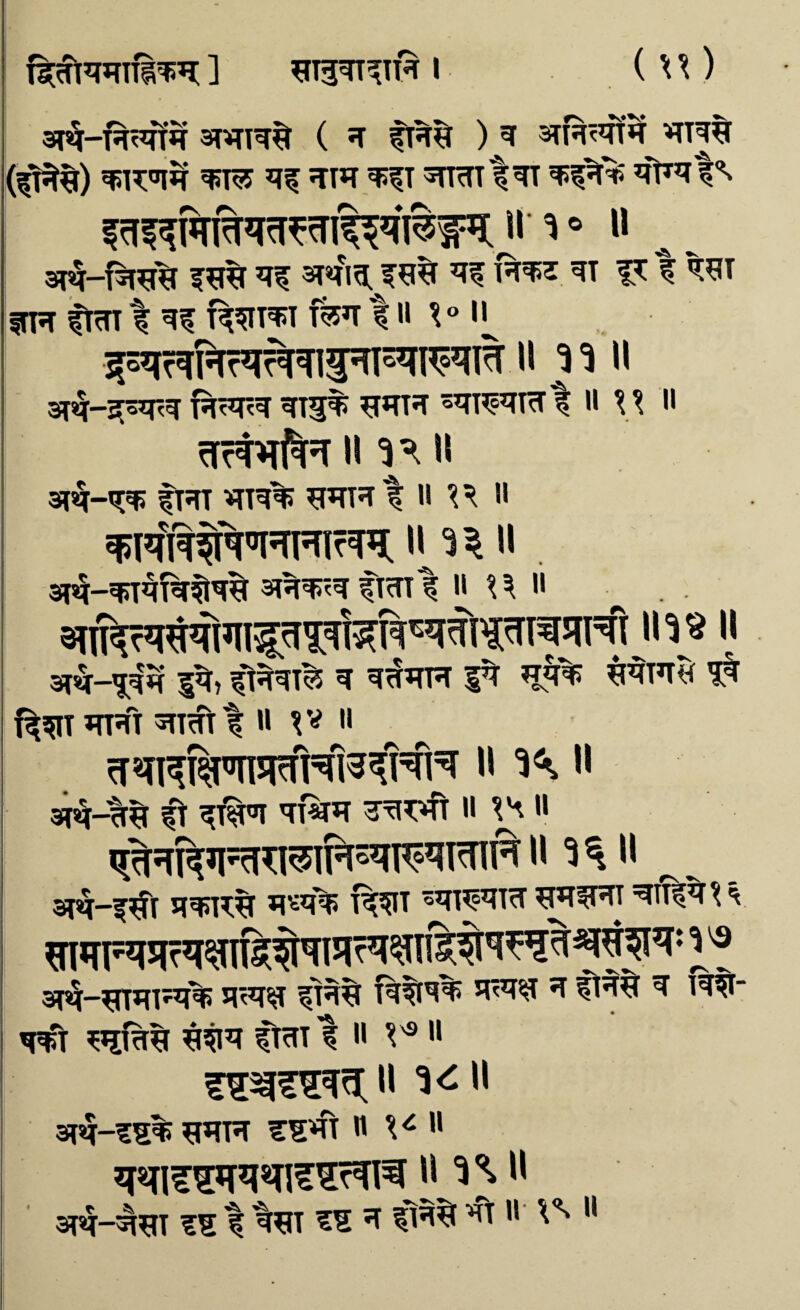 द्वितीयमाह्निकम् ] सानुवादानि । ( ११ )
अर्थ-नित्योंमें अभावसे ( न होनेसे ) व अनित्योंमें भावसे
(होनेसे) कारणमें काल यह नाम कहा जाता है वा कहनेके योग्य है९
इतइदमितियतस्तद्दिश्यंलिङ्गम् ॥ १० ॥
अर्थ-जिससे इससे यह अर्थात् इससे यह निकट वा दूर है ऐसा
ज्ञान होता है यह दिशाका लिङ्ग है ॥ १० ॥
द्रव्यत्वनित्यत्वेवायुनाव्याख्याते ॥ ११ ॥
अर्थ-द्रव्यत्व नित्यत्व वायुके समान व्याख्यात है ॥ ११ ॥
तत्त्वंभावेन ॥ १२ ॥
अर्थ-एक होना भावके समान है ॥ १२ ॥
कार्यविशेषेणनानात्वम् ॥ १३ ॥
अर्थ-कार्यविशेषसे अनेकत्व होता है ॥ १३ ॥
आदित्यसंयोगाद्भूतपूर्वाद्भविष्यतोभूताच्चप्राची ॥१४ ॥
अर्थ-पूर्वमें हुये, होनेवाले व वर्तमान हुये सूर्यके संयोगसे पूर्व
दिशा मानी जाती है ॥ १४ ॥
तथादक्षिणाप्रतीचीउदीचीच ॥ १५ ॥
अर्थ-वैसे ही दक्षिण पश्चिम उत्तरभी ॥ १५ ॥
एतेनदिगन्तरालानिव्याख्यातानि ॥ १६ ॥
अर्थ-इसी प्रकारसे मध्यके दिशा व्याख्यात समझना चाहिये१६
सामान्यप्रत्यक्षाद्विशेषाप्रत्यक्षाद्विशेषस्मृतेश्चसंशयः१७
अर्थ-सामान्यके प्रत्यक्ष होनेसे विशेषके प्रत्यक्ष न होनेसे व विशे-
षकी स्मृतिसे संशय होता है ॥ १७ ॥
दृष्टञ्चदृष्टवत् ॥ १८ ॥
अर्थ-दृष्टके समान दृष्टभी ॥ १८ ॥
यथादृष्टमयथादृष्टत्वाच्च ॥ १९ ॥
अर्थ-जैसा दृष्ट है वैसा दृष्ट न होनेसे भी ॥ १९ ॥